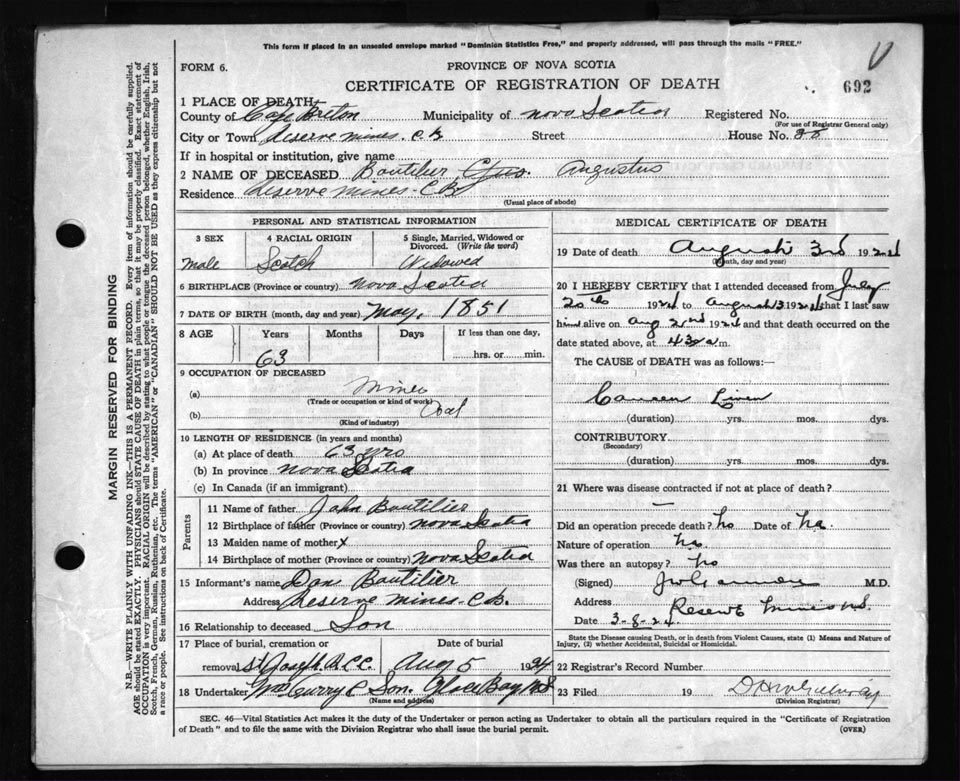 This form if placed in an unsealed envelope marked "Dominion Statistics Free," and properly addressed, will pass through the mails "FREE."
FORM 6.
PROVINCE OF NOVA SCOTIA
CERTIFICATE OF REGISTRATION OF DEATH
692
1 PLACE OF DEATH—
County of Cape Breton Municipality of Nova Scotia Registered No.
(For use of Registrar General only)
City or Town Reserve Mines. C.B. Street House No. 88
If in hospital or institution, give name
2 NAME OF DECEASED Boutilier Augustus
Residence Reserve Mines - C.B.
(Usual place of abode)
PERSONAL AND STATISTICAL INFORMATION
3 SEX 4 RACIAL ORIGIN 5 Single, Married, Widowed or Divorced. (Write the word)
male Scotch Widowed
6 BIRTHPLACE (Province or country) Nova Scotia
7 DATE OF BIRTH (month, day and year) May, 1851
8 AGE Years Months Days If less than one day,
63 hrs. or min.
9 OCCUPATION OF DECEASED
(a) Miner
(Trade or occupation or kind of work)
(b) Coal
(Kind of industry)
10 LENGTH OF RESIDENCE (in years and months)
(a) At place of death 63 yrs
(b) In province Nova Scotia
(c) In Canada (if an immigrant)
Parents
11 Name of father John Boutilier
12 Birthplace of father (Province or country) Nova Scotia
13 Maiden name of mother X
14 Birthplace of mother (Province or country) Nova Scotia
15 Informant's name Dan Boutilier
Address Reserve Mines - C.B.
16 Relationship to deceased Son
17 Place of burial, cremation or Date of burial
removal St Joseph Aug 5 1924
18 Undertaker McCurry & Son. Glace Bay N.S
(Name and address)
MEDICAL CERTIFICATE OF DEATH
19 Date of death August 3rd 1924
(Month, day and year)
20 I HEREBY CERTIFY that I attended deceased from July
20th 1924 to August 3 1924 that I last saw
him alive on Aug 2nd 1924 and that death occurred on
date stated above, at 430 a m.
The CAUSE of DEATH was as follows:—
Cancer Liver
(duration) yrs. mos. dys.
CONTRIBUTORY
(Secondary)
(duration) yrs. mos. dys.
21 Where was disease contracted if not at place of death?
—
Did an operation precede death? No Date of No.
Nature of operation No.
Was there an autopsy? No
(Signed) M.D.
Address Reserve Mines N.S.
Date 3-8-24.
State the Disease causing Death, or in death from Violent Causes, state (1) Means and Nature of
Injury, (2) whether Accidental, Suicidal or Homicidal.
22 Registrar's Record Number
23 Filed 19
(Division Registrar)
SEC. 46—Vital Statistics Act makes it the duty of the Undertaker or person acting as Undertaker to obtain all the particulars required in the "Certificate of Registration
of Death" and to file the same with the Division Registrar who shall issue the burial permit.
(OVER)
MARGIN RESERVED FOR BINDING
N.B.—WRITE PLAINLY WITH UNFADING INK—THIS IS A PERMANENT RECORD. Every item of information should be carefully supplied.
AGE should be stated EXACTLY. PHYSICIANS should STATE CAUSE OF DEATH in plain terms, so that it may be properly classified. Exact statement of
OCCUPATION is very important. RACIAL ORIGIN will be described by stating to what people or tongue the deceased person belonged, whether English, Irish,
Scotch, French, German, Russian, Ruthenian, etc. The terms "AMERICAN" or "CANADIAN" SHOULD NOT BE USED as they express citizenship but not
a race or people. See instructions on back of Certificate.